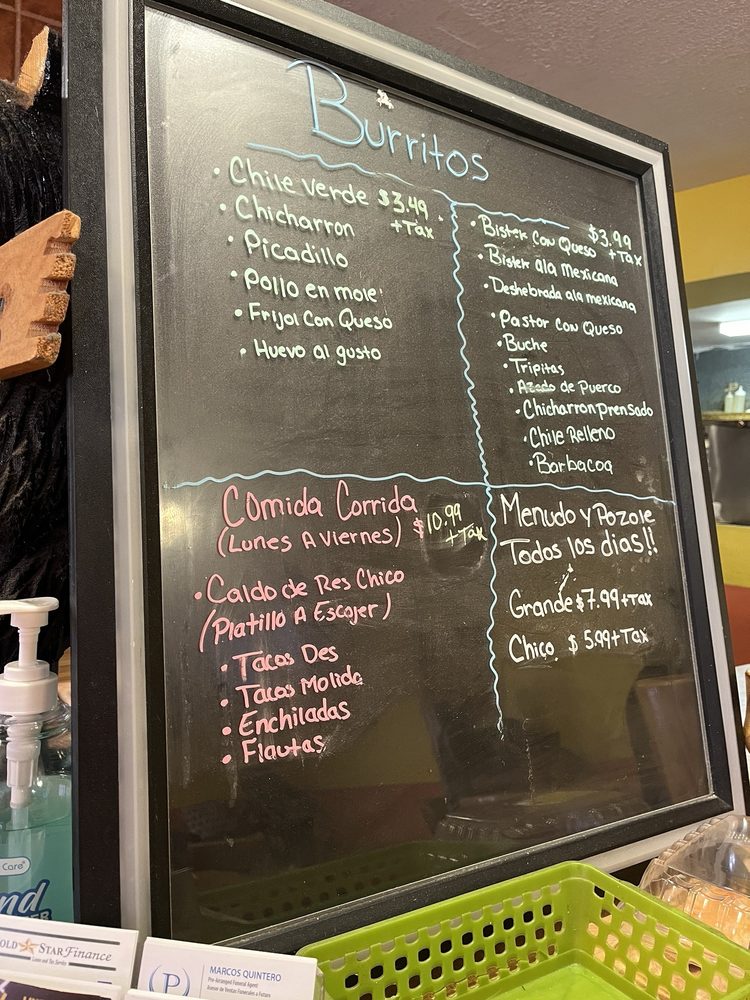 Burritos
• Chile verde $3.49
+Tax
• Chicharron
• Picadillo
• Pollo en mole
• Frijol Con Queso
• Huevo al gusto
• Bistek Con Queso $3.99
+Tax
• Bistek ala Mexicana
• Deshebrada ala mexicana
• Pastor con Queso
• Buche
• Tripitas
• Asado de Puerco
• Chicharron prensado
• Chile Relleno
• Barbacoa
Comida Corrida
(Lunes A Viernes) $10.99
+Tax
• Caldo de Res Chico
(Platillo A Escojer)
• Tacos Des
• Tacos Molida
• Enchiladas
• Flautas
Menudo y Pozole
Todos los dias!!
Grande $7.99+Tax
Chico $ 5.99+Tax
Care
nd
OLD STAR Finance
Loans and Tax Service
P
MARCOS QUINTERO
Pre-Arranged Funeral Agent
Asesor de Ventas Funerales a Futuro